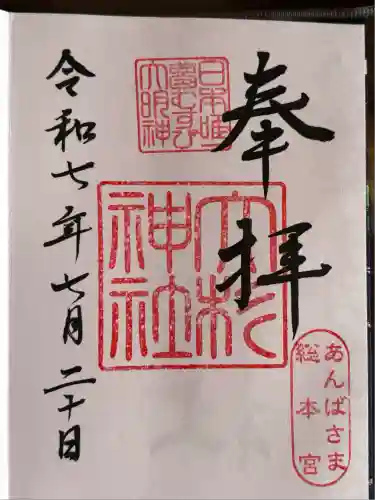 奉拝
日本唯一
夢むすび
大明神
大杉
神社
あんばさま
総本宮
令和七年七月二十日